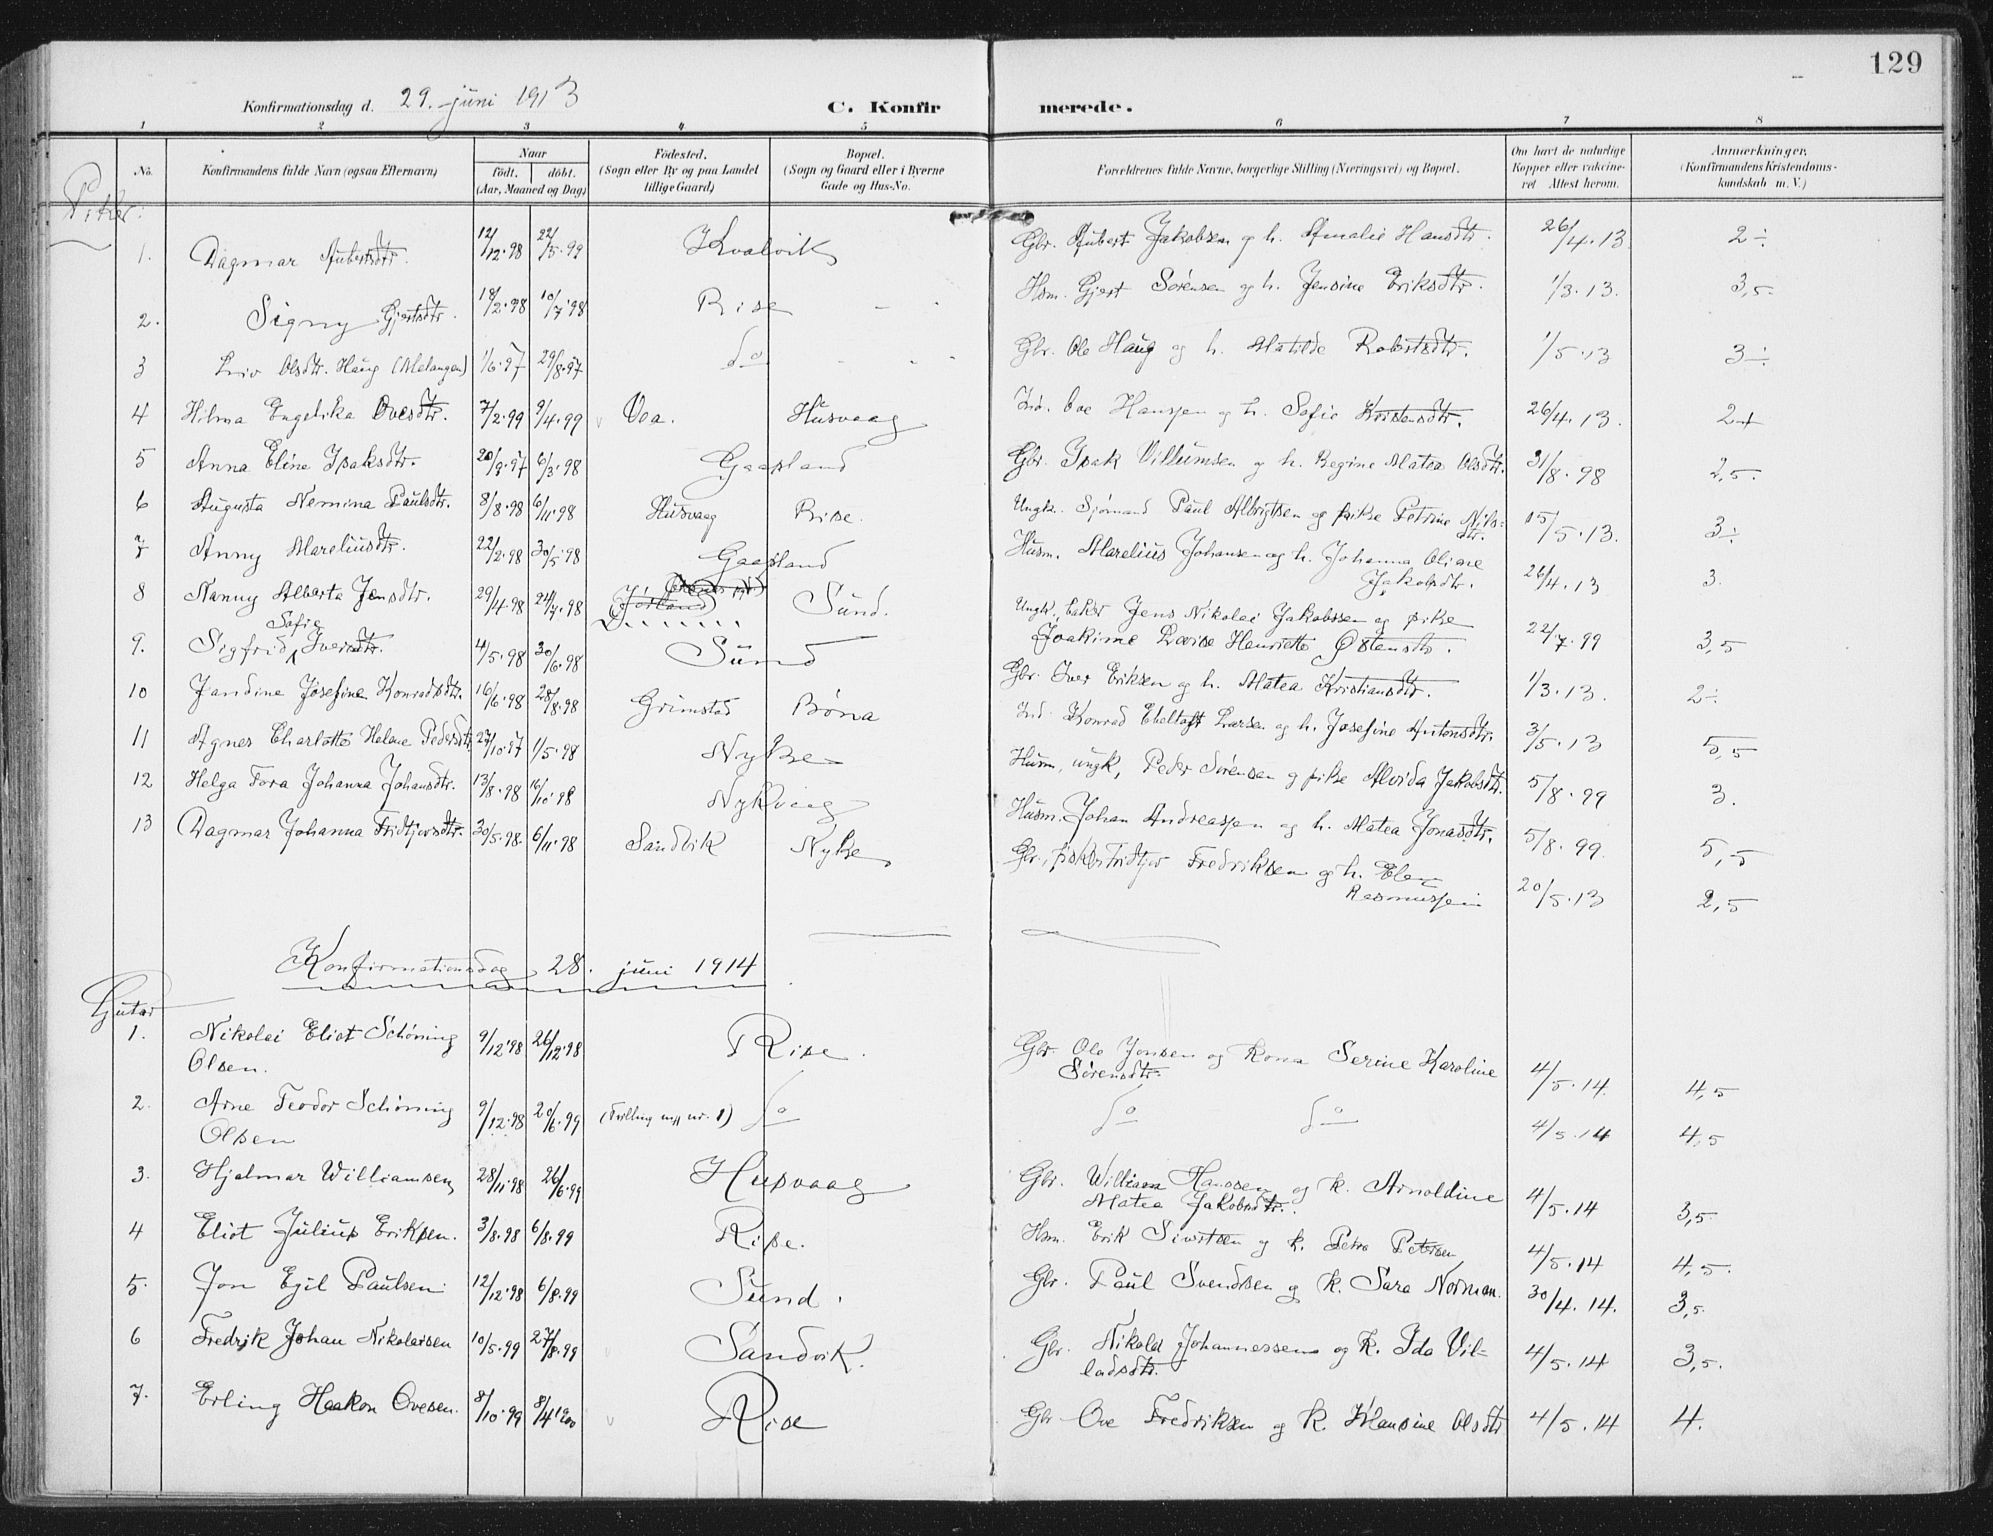 129
Konfirmationsdag d. 29. juni 1913 C. Konfirmerede.
1 2 3 4 5 6 7 8
No. Konfirmandens fulde Navn (ogsaa Efternavn) Naar födt. döbt. (Aar, Maaned og Dag) Födested. (Sogn eller By og paa Landet tillige Gaard) Bopæl. (Sogn og Gaard eller i Byerne Gade og Hus-No. Forældrenes fulde Navne, borgerlige Stilling (Næringsvei) og Bopæl. Om havt de naturlige Kopper eller vaccineret Attest herom. Anmærkninger. (Konfirmandens Kristendomskundskab m. V.)
Piker:
1. Dagmar 12/12.98 22/5.99 Kvalvik Gbr. Jakobsen og h. Amalie Hansdtr. 26/4.13. 2÷
2. Signy Gjertsdtr. 18/2.98 10/7.98 Rise Hsm. Gjert Sörensen og h. Jensine Eriksdtr. 1/3.13. 3,5.
3 Liv Olsdtr. Haug (Melangen) 1/6.97 29/8.97 do Gbr. Ole Haug og h. Matilde Robertsdtr. 1/5.13 3÷
4 Hilma Engelika Ovesdtr. 7/2.99 9/4.99 Vea. Husvaag Ind. Ove Hanssen og h. Sofie Kristensdtr. 26/4.13. 2+
5 Anna Eline Isaksdtr. 20/9.97 6/3.98 Gaasland Gbr. Isak Villumsen og h. Regine Matea Olsdtr. 31/8.98 2,5.
6 Augusta Nemina Paulsdtr. 8/8.98 6/11.98 Husvaag Rise. Ungk. Sjömand Paul Albrigtsen og pike Petrine Nilsdtr. 15/5.13. 3÷
7 Anny Mareliusdtr. 22/2.98 30/5.98 Gaasland Husm. Marelius Johansen og h. Johanna Oline Jakobsdtr. 26/4.13 3.
8 Nanny Alberta Jensdtr. 29/4.98 24/7.98 Sund. Ungk. baker Jens Nikolai Jakobssen og pike Joakime Lovise Henriette Östensdtr. 22/7.99 3,5
9. Sigfrid Sofie Iversdtr. 4/5.98 30/6.98 Sund Gbr. Iver Eriksen og h. Matea Kristiansdtr. 1/3.13. 2÷
10 Jandine Josefine Konradsdtr. 16/6.98 28/8.98 Grimstad Böna Ind. Konrad Ebeltoft Larsen og h. Josefine Antonsdtr. 3/5.13 5,5
11 Agnes Charlotte Helene Pedersdtr. 27/10.97 1/5.98 Nykse Husm. ungk, Peder Sörensen og pike Alvida Jakobsdtr. 5/8.99 3.
12 Helga Tora Johanna Johansdtr. 13/8.98 16/10.98 Nykvaag Husm. Johan Andreassen og h. Matea Jonasdtr. 5/8.99. 5,5
13 Dagmar Johanna Fridtjovsdtr. 30/5.98. 6/11.98 Sandvik Nykse Gbr., fisker Fridtjov Fredriksen og h. Elen Rasmussen 20/5.13 2,5
Konfirmationsdag 28. juni 1914
Gutar
1. Nikolai Eliot Schöning Olsen. 9/12.98 26/12.98 Rise. Gbr. Ole Jonsen og kona Serine Karoline Sörensdtr. 4/5.14. 4,5
2. Arne Teodor Schöning Olsen 9/12.98 20/6.99 (Tvilling m/ nr. 1) do do do 4/5.14 4,5
3. Hjalmar Williamsen 28/11.98 26/6.99 Husvaag Gbr. William Hanssen og k. Arnoldine Matea Jakobsdtr. 4/5.14 3,5.
4 Eliot Julius Eriksen. 3/8.98 6/8.99 Rise. Hsm. Erik Sivertsen og k. Petra Petersen 4/5.14 4,5.
5. Jon Egil Paulsen 12/12.98 6/8.99 Sund. Gbr. Paul Svendsen og k. Sara Norman. 30/4.14. 3,5.
6 Fredrik Johan Nikolaisen 10/5.99 27/8.99 Sandvik. Gbr. Nikolai Johannessen og k. Ida Villadsdtr. 4/5.14 3,5.
7. Erling Haakon Ovesen. 8/10.99 8/4 1900 Rise Gbr. Ove Fredriksen og k. Hansine Olsdtr 4/5.14 4.